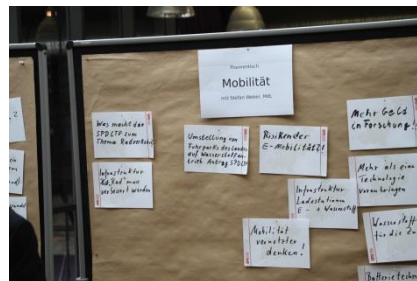 Thementisch
Mobilität
mit Stefan Weber, MdL
Was macht der
SPDLTF zum
Thema
Infrastruktur
verbessert werden
Umstellung von
Fuhrparks des Landes
auf Wasserstoffan-
trieb Antrag SPDLTF
Risiken der
E-Mobilität?!
Infrastruktur
Ladestationen
E- + Wasserstoff
Mobilität
vernetzter
denken!
Mehr Geld
in Forschung!
Mehr als eine
Technologie
voranbringen
Wasserstoff
für die
Batterietechn